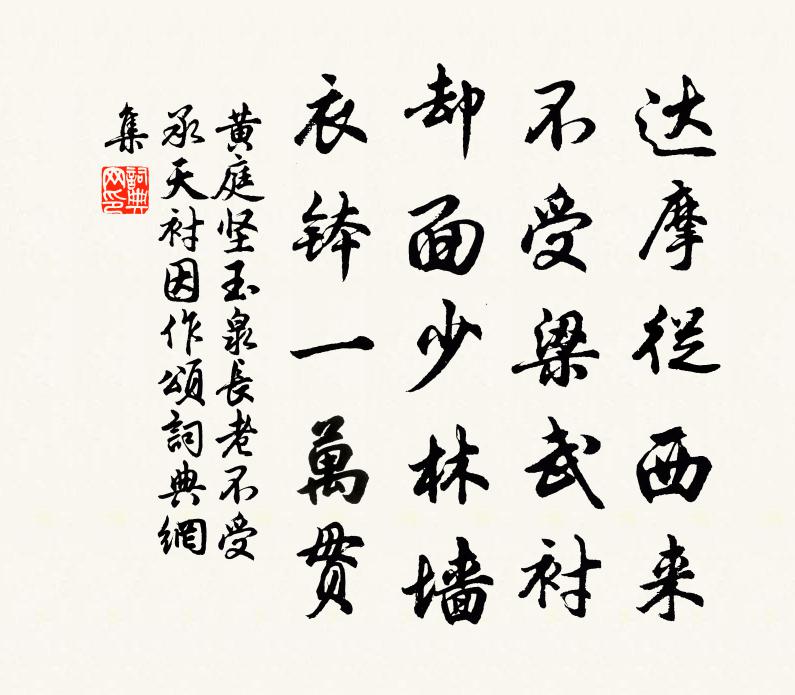 达摩從西来
不受梁武衬
却面少林墙
衣钵一萬贯
黄庭坚玉泉長老不受
承天衬因作頌詞典網
集
詞典网印